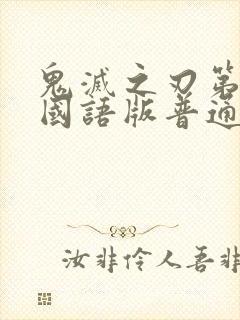 鬼滅之刃第
國語版普通
汝非伶人吾非